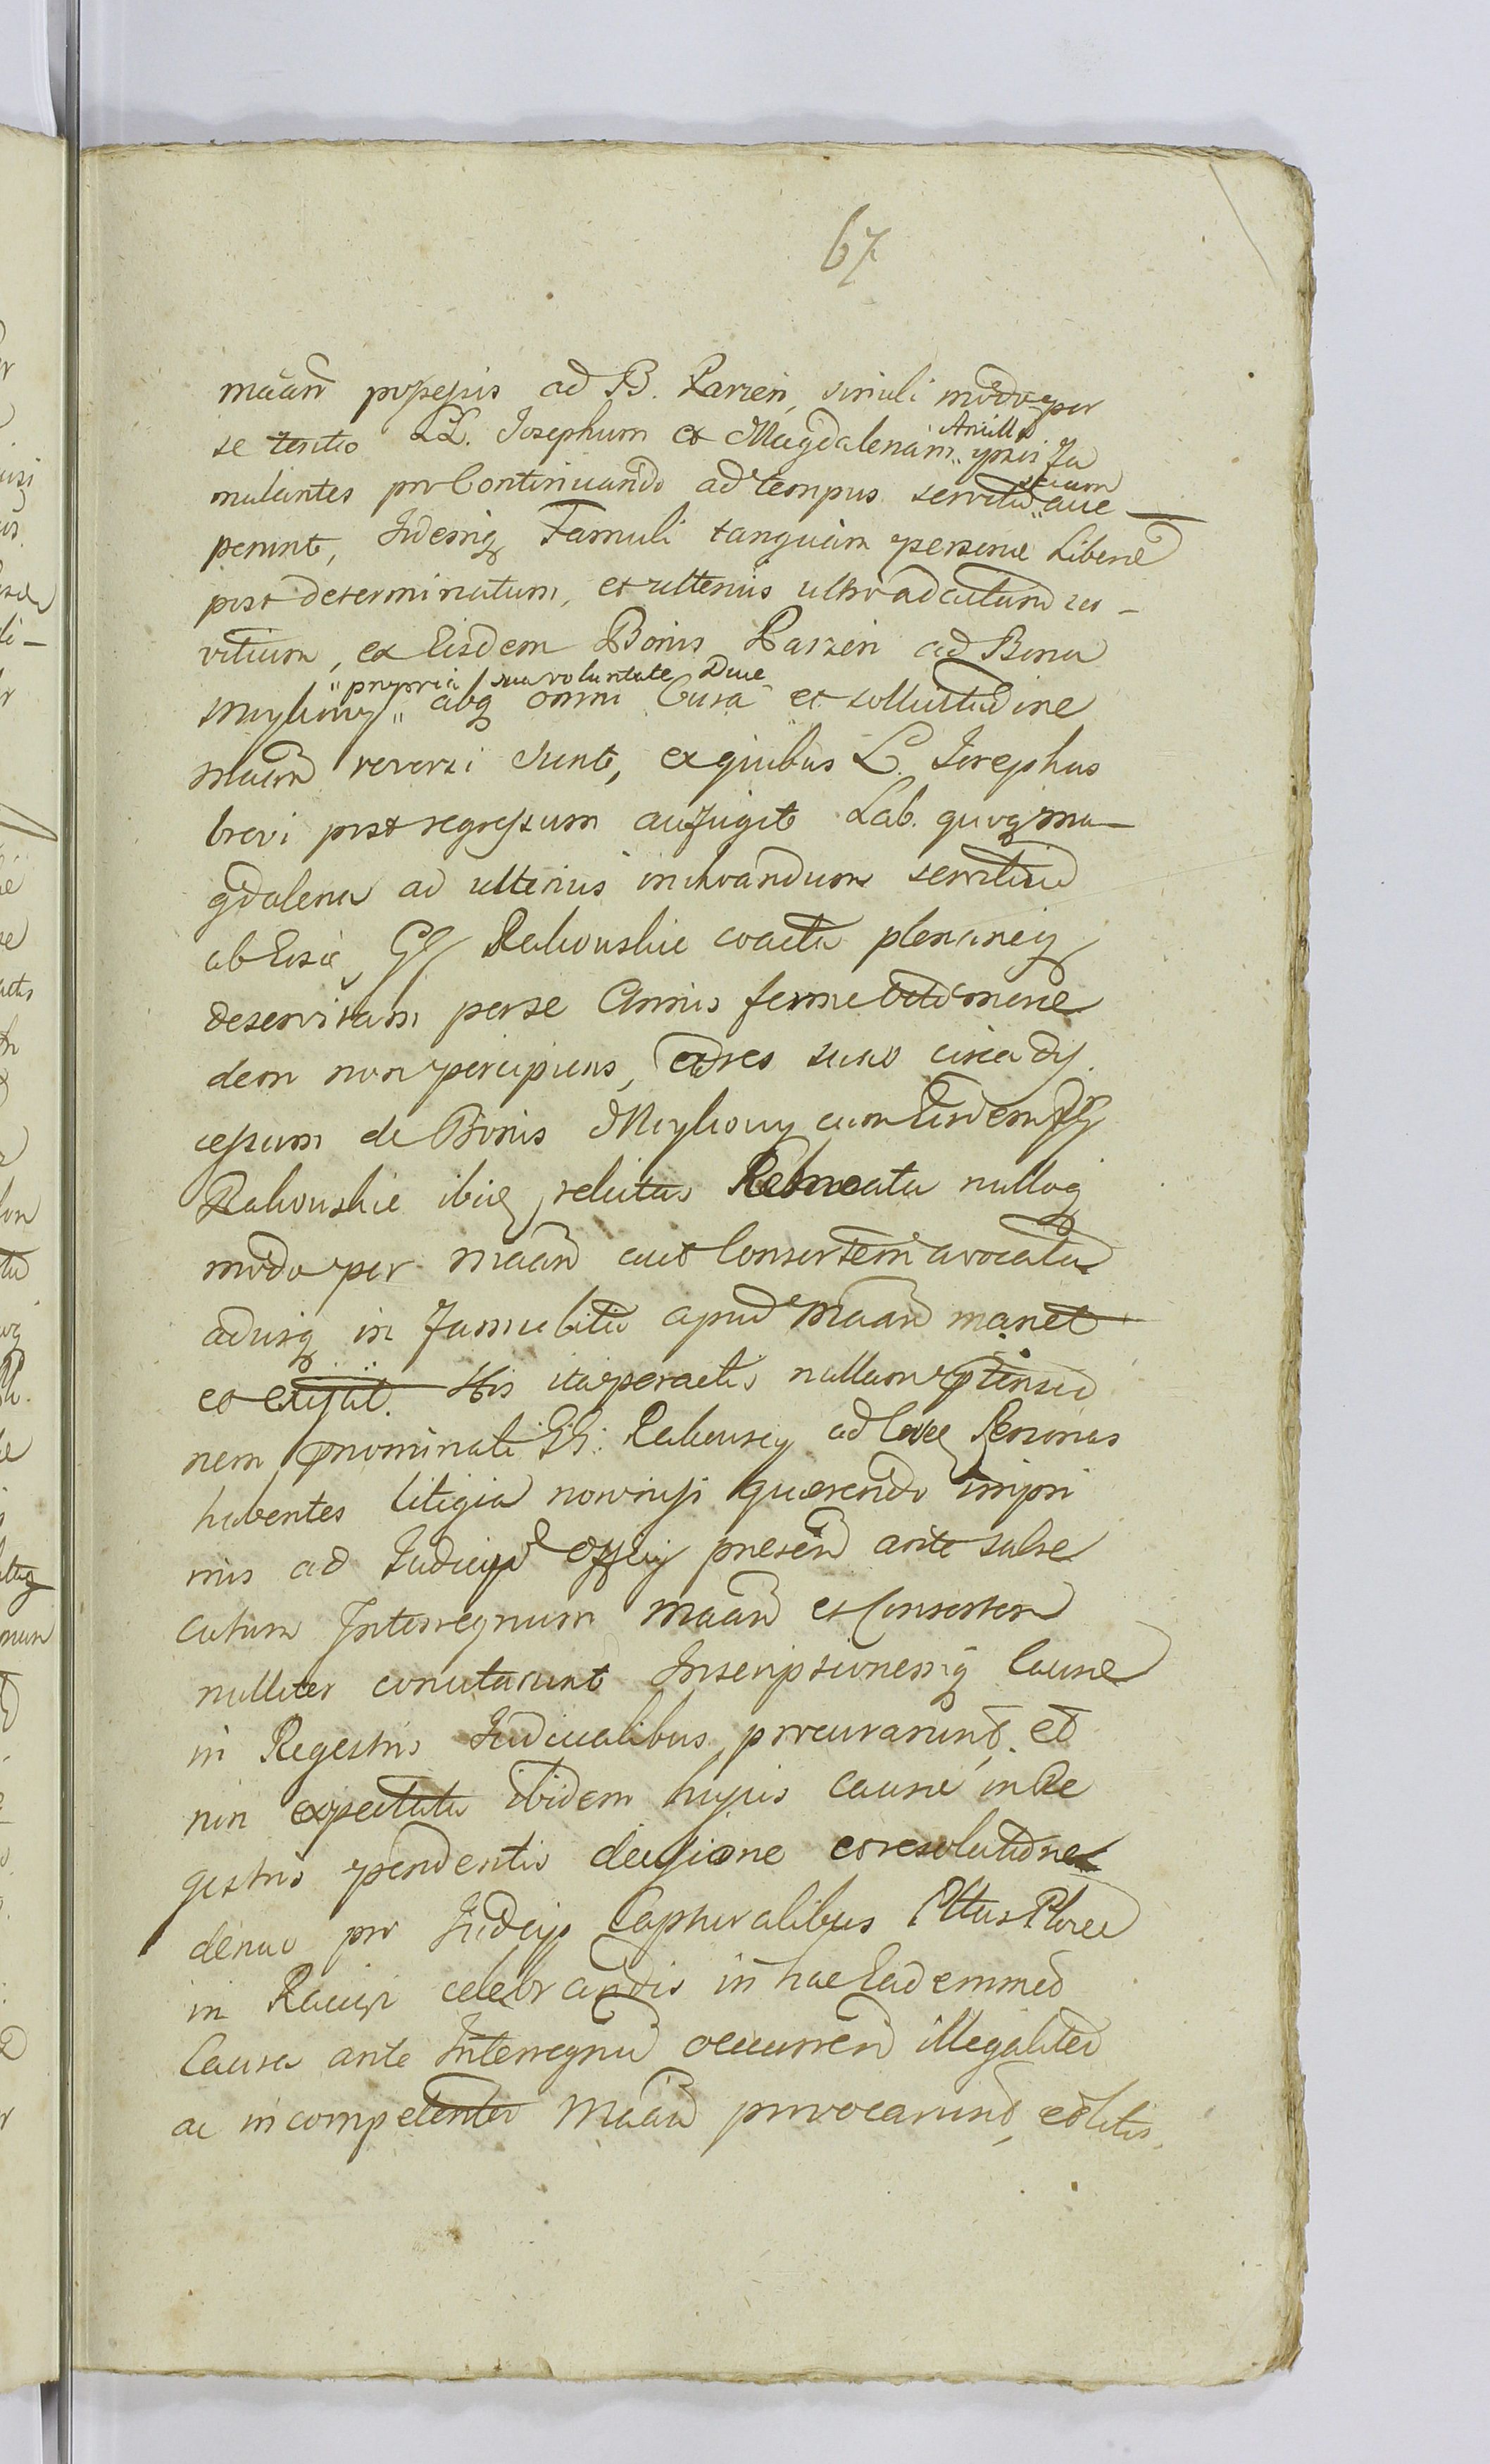 67
māan possessis ad B. Parzen, simili modo per
se tento LL. Josephum et Magdalenam "Ancill" ipsis fa
mulantes pro Continuando ad tempus servitio "secum" acce
perunt, Iidemq Famuli tanquam personae Liberae
post determinatum, et ulterius ultro adauctum ser-
vitium, ex Eisdem Bonis Parzen ad Bona
Myliowy "propria sua voluntate Due" absq omni Cura et sollicitudine
Maan reversi sunt, ex quibus L. Josephus
brevi post regressum aufugit Lab. quoq Ma-
gdalena ad ulterius inchoandum servitiu
ab Eisd GG Rakouskie coacta plenaneq
deservitam per se Annis ferme mene
dem non percipiens, ad res suas circa dis
cessum de Bonis Myliowy cum Eisdem GG
Rakouskie ibiq relictas Rebocata nulloq
modo per Maan aut Consortem avocata
adusq in famulitio apud Maan manet
et His ita peractis nullam ptensio
nem pnominati GG: Rakouscy ad Personas
habentes litigia non nisi quaerendo impri
mis ad Judicia Officii presen ante subse
cutum Interregnum Maan et Consortem
nulliter conutarunt Inscriptionemq Cause
in Regestris Judicialibus procurarunt, et
non expectata ibidem hujus cause in Re
gestris pendentis decisione et resolutione
denuo pro Judicijs Capturalibus Pttus Ploceñ
in Raciąż celebrandis in hac Eademmet
Causa ante Interregnu occurren illegaliter
ac incompetenter Maan provocarunt, et litis